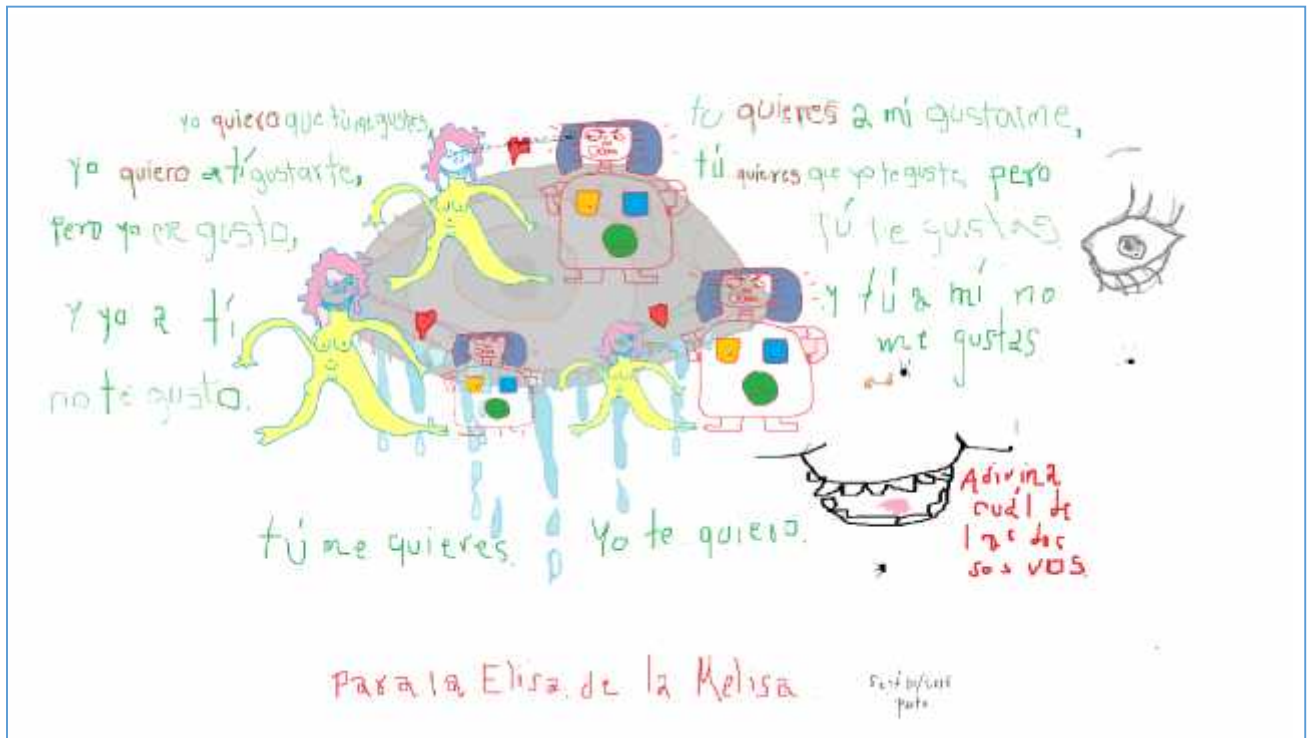 yo quiero que tú me gustes,
yo quiero a tí gustarte,
pero yo me gusto,
y yo a tí
no te gusto.
tu quieres a mí gustarme,
tú quieres que yo te guste, pero
tú te gustas
y tú a mí no
me gustas
tú me quieres.
Yo te quiero.
Adivina
cuál de
las dos
sos vos.
Para la Elisa de la Melisa